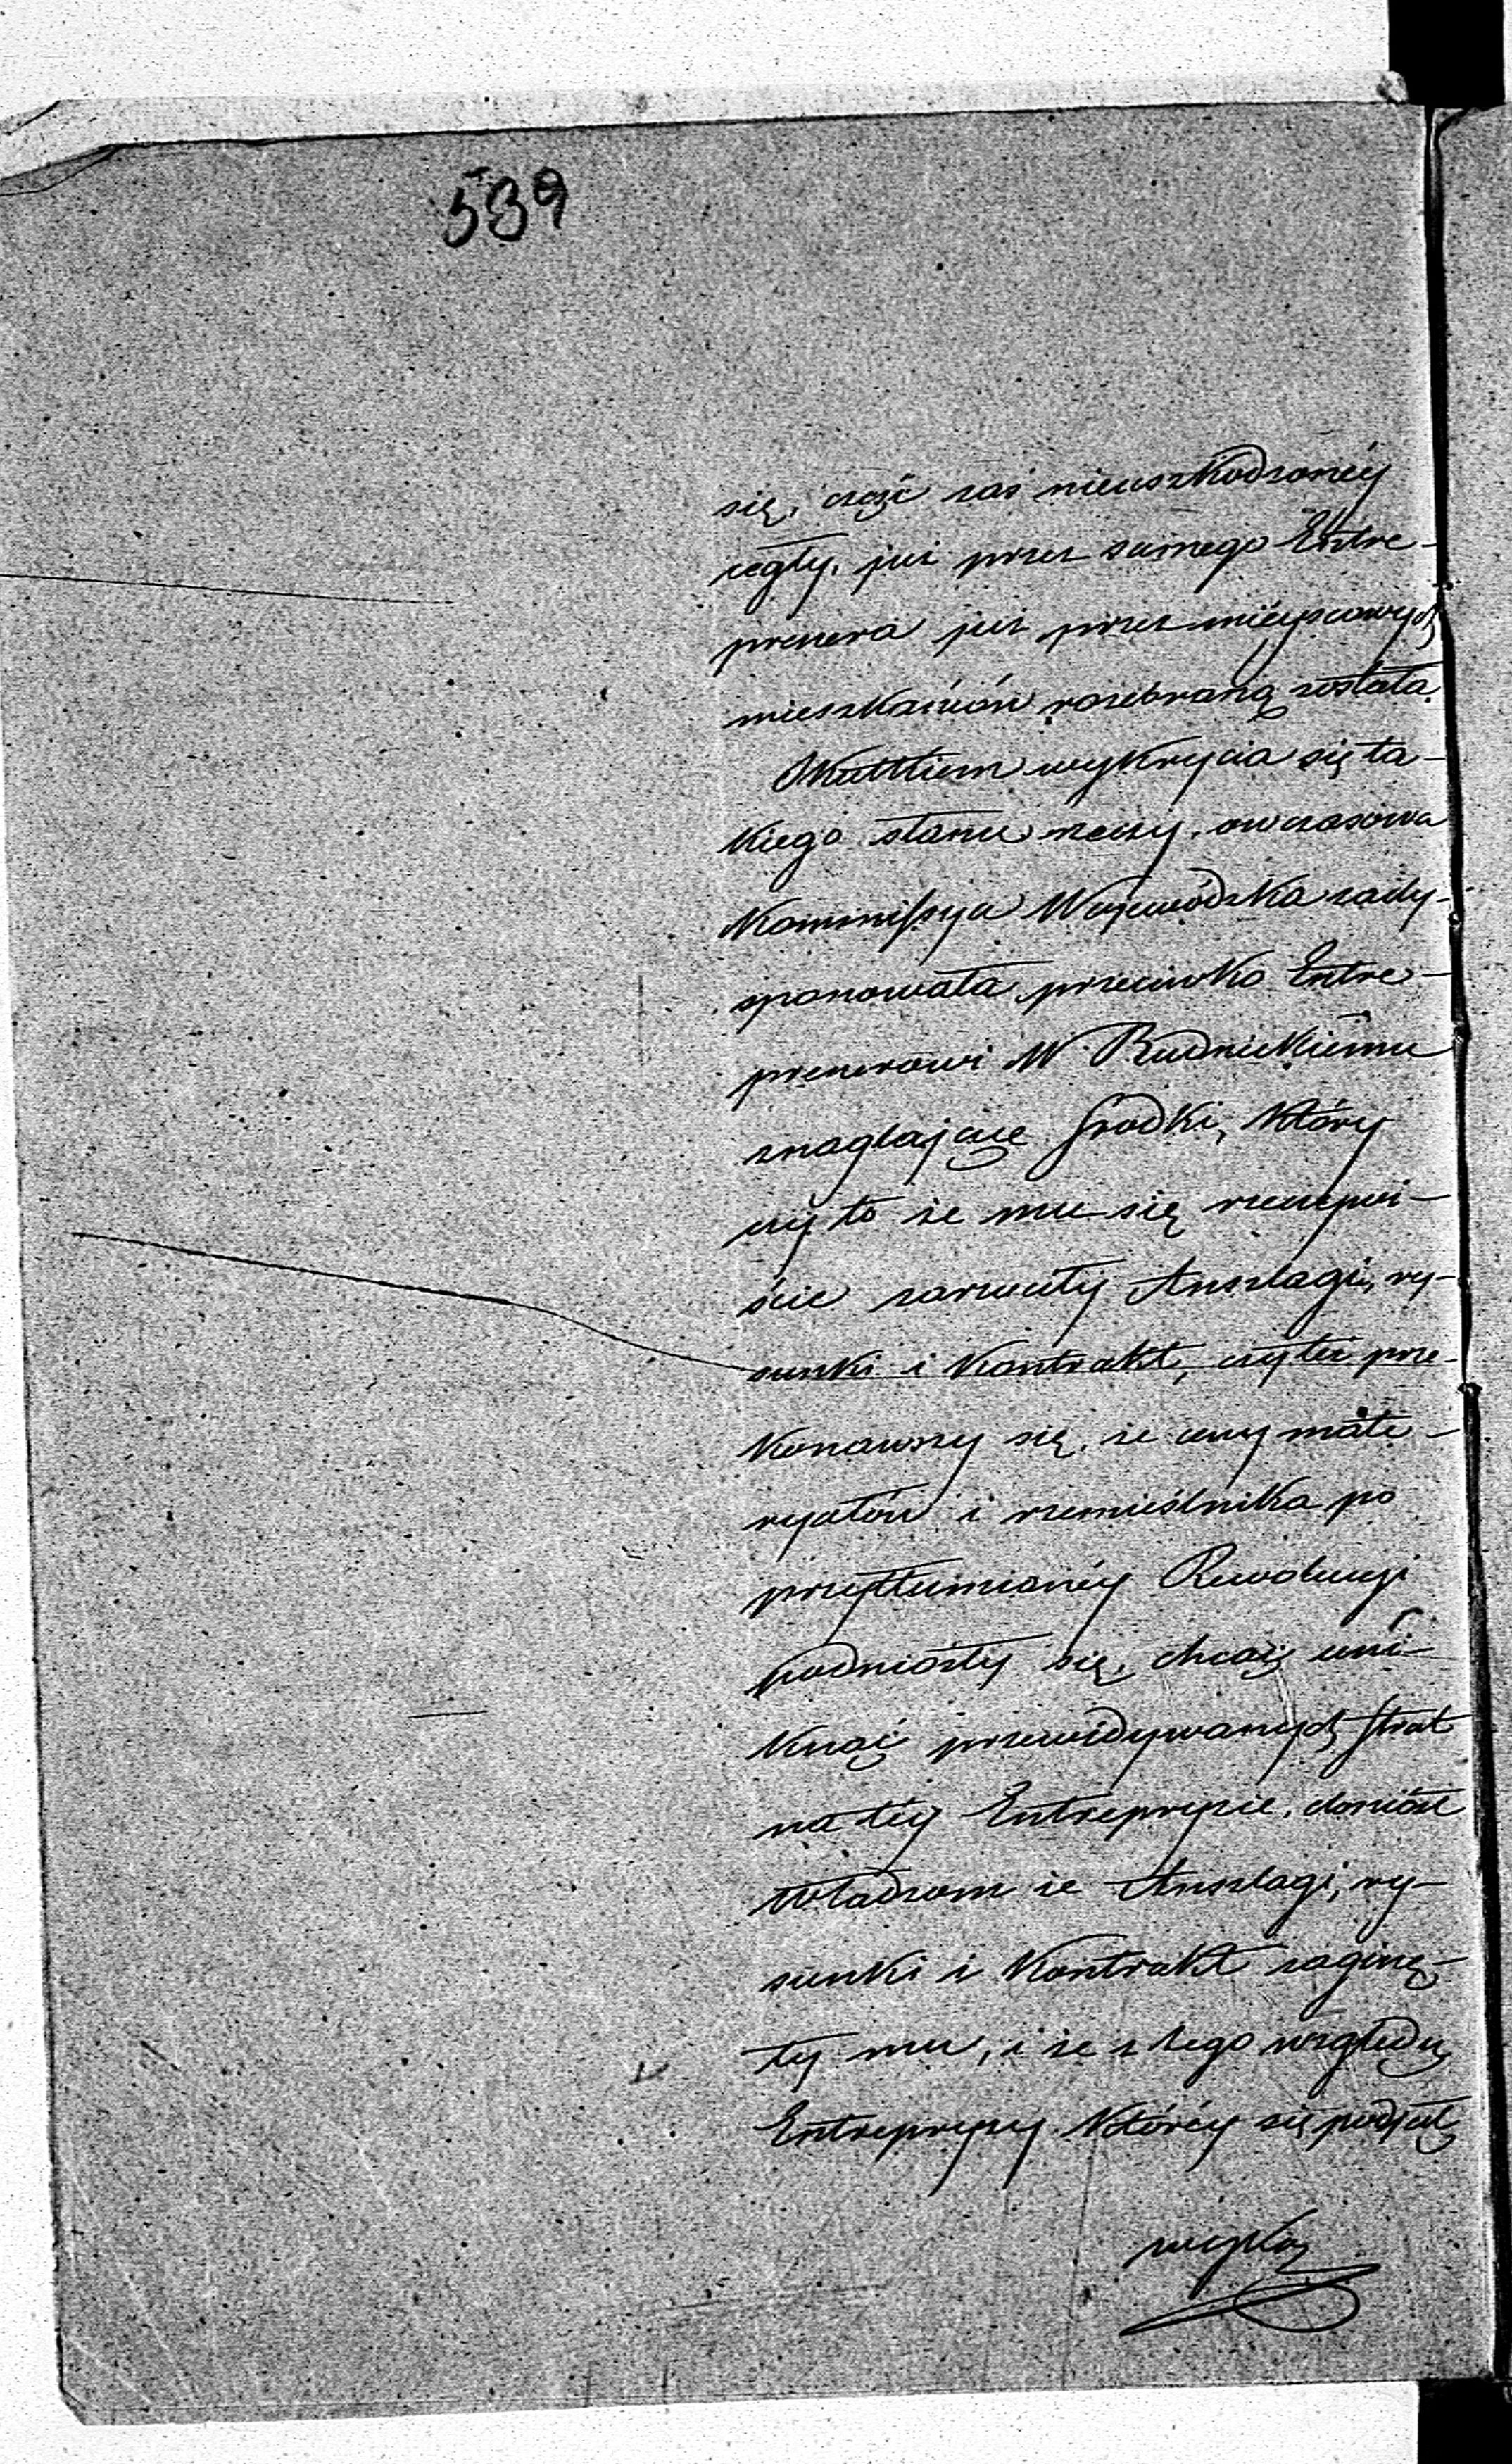 539
się, część zaś nieuszkodzonéy
cegły, już przez samego Entre-
prenera już przez mieyscowych
mieszkańców rozebraną została
Skutkiem wykrycia się ta-
kiego stanu rzeczy, owczasowa
Kommissya Wojewódzka zady-
sponowała przeciwko Entre-
prenerowi W Rudnickiemu
znaglające środki, który
czy to że mu się rzeczywi-
ście zarzuciły Anszlagi, ry-
sunki i Kontrakt, czyteż prze-
konawszy się, że ceny mate-
ryałów i rzemieślnika po
przytłumionéy Rewolucyi
podniosły się, chcąc uni-
knąć przewidywanych strat
na téy Entrepryzie, doniósł
Władzom że Anszlagi, ry-
sunki i Kontrakt zaginę-
ły mu, i że z tego względu
Entrepryzy któréy się podjął,